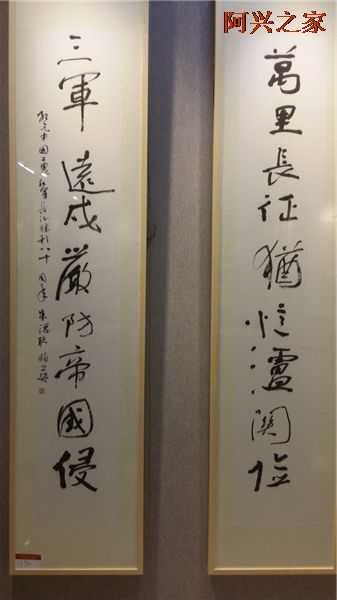 阿兴之家
萬里長征猶憶瀘關險
三軍遠戍嚴防帝國侵
中國工農紅軍長征勝利八十周年